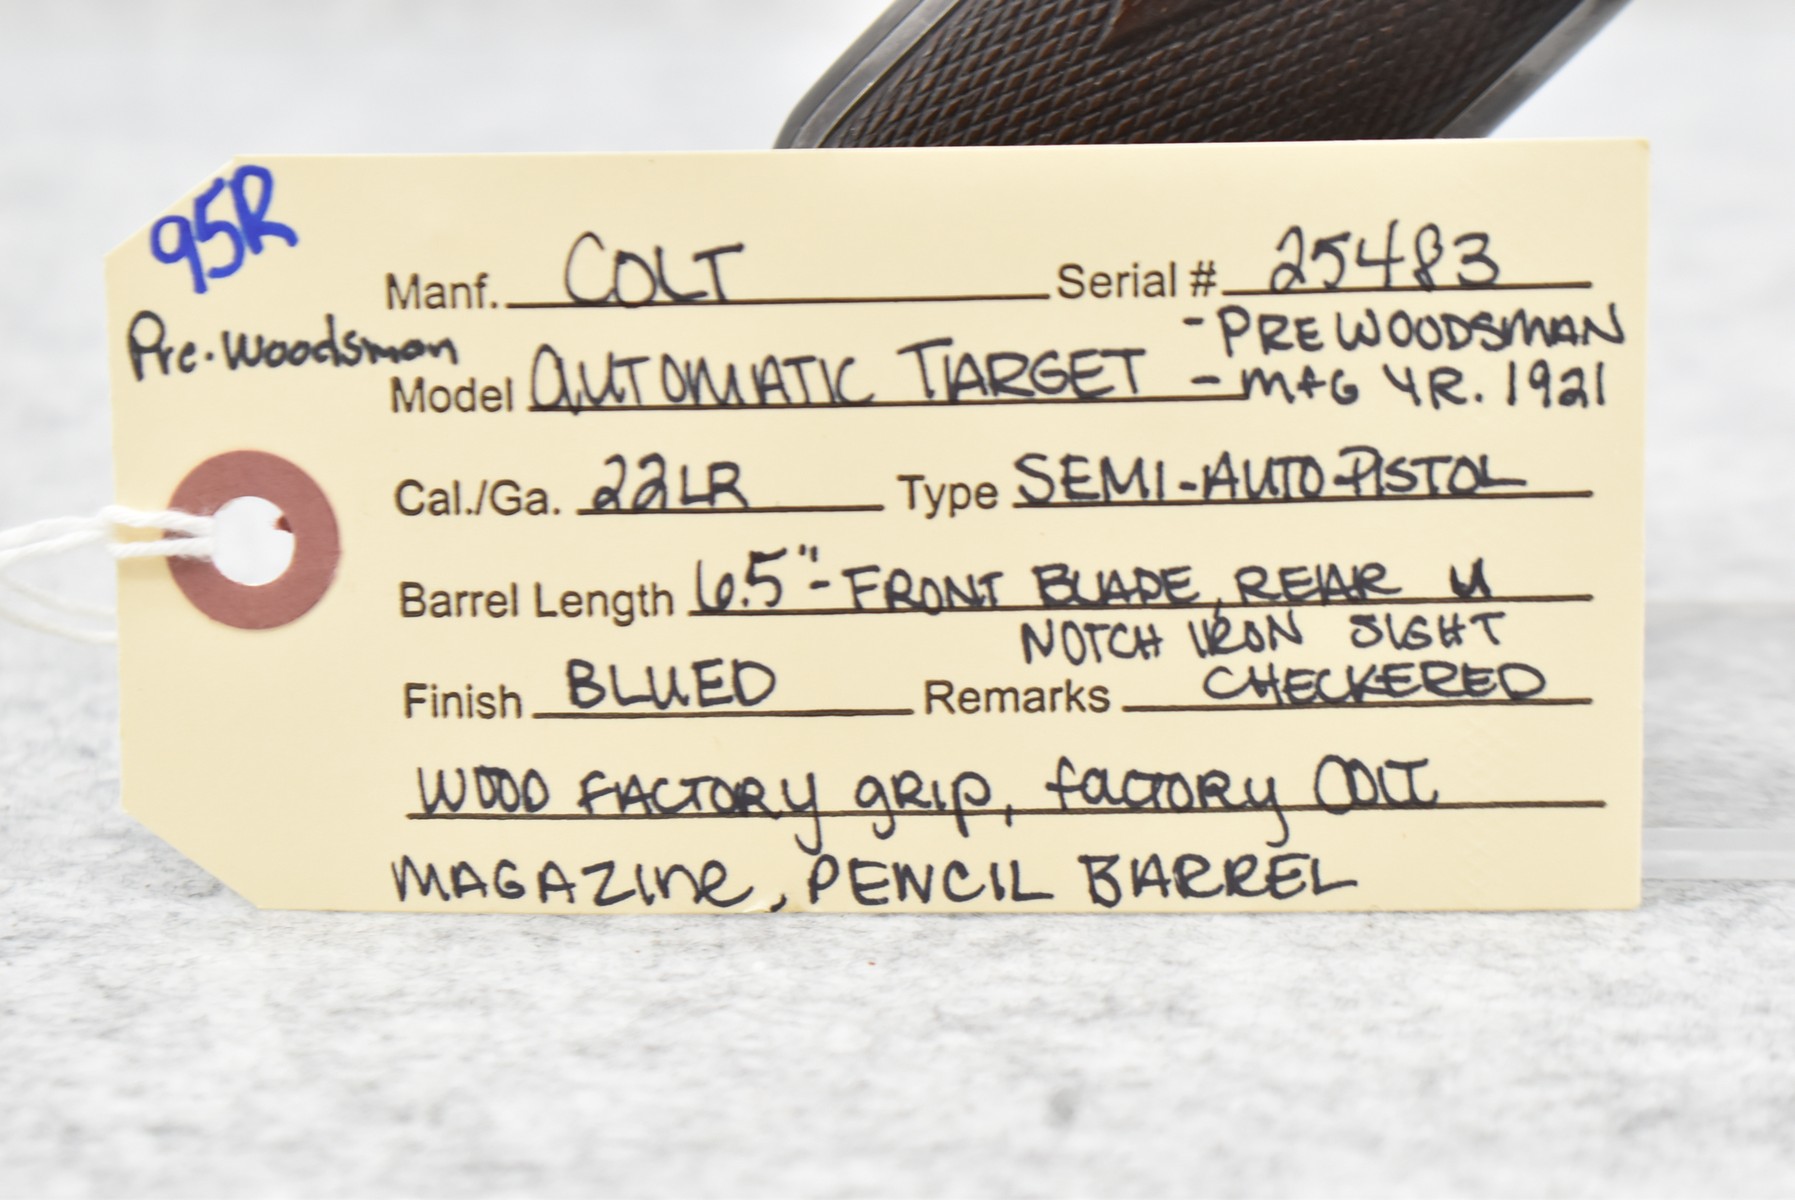 95R
Pre-Woodsman
Manf. COLT Serial # 25483
- PREWOODSMAN
Model AUTOMATIC TARGET - MFG YR. 1921
Cal./Ga. 22LR Type SEMI-AUTO-PISTOL
Barrel Length 6.5" - FRONT BLADE, REAR U
NOTCH IRON SIGHT
Finish BLUED Remarks CHECKERED
WOOD FACTORY grip, factory COLT
MAGAZINE, PENCIL BARREL